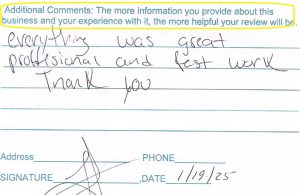 Additional Comments: The more information you provide about this
business and your experience with it, the more helpful your review will be.
everything was great
proffisional and fast work
Thank you
Address PHONE
SIGNATURE ,DATE 1/19/25